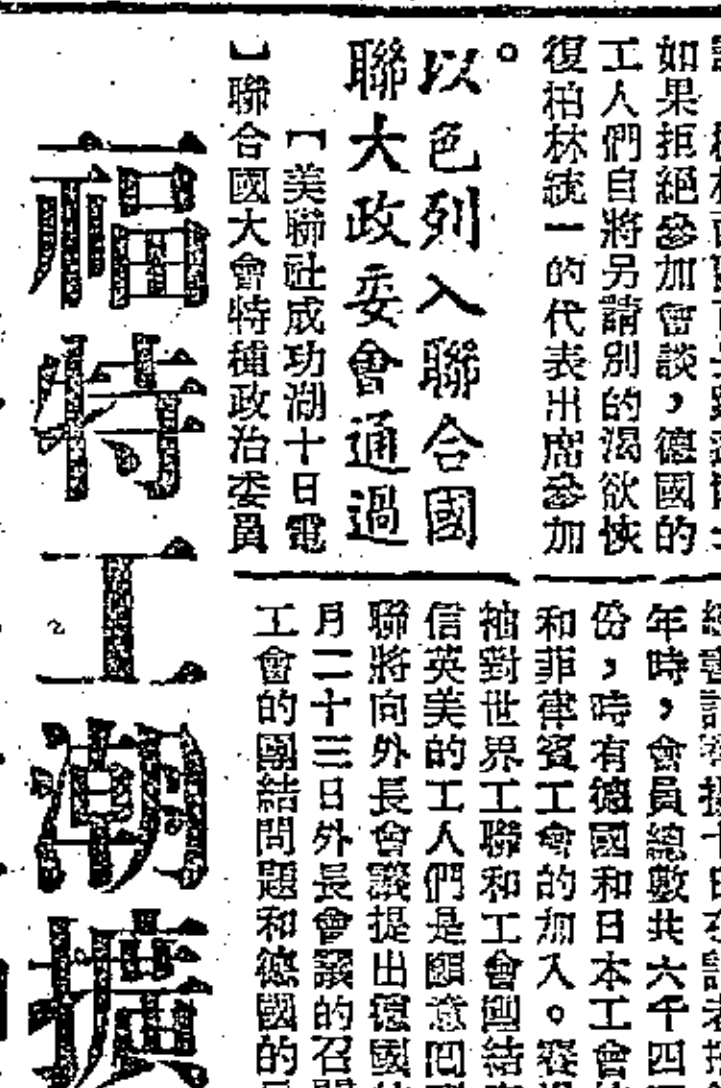 如果拒絕參加會談，德國的
工人們自將另請別的渴欲恢
復柏林統一的代表出席參加
。
以色列入聯合國
聯大政委會通過
【美聯社成功湖十日電
】聯合國大會特種政治委員
年時，會員總數共六千四
份，時有德國和日本工會
和菲律賓工會的加入。
袖對世界工聯和工會團結
信英美的工人們是願意
聯將向外長會議提出德國
月二十三日外長會議的召開
工會的團結問題和德國的
福特工潮擴